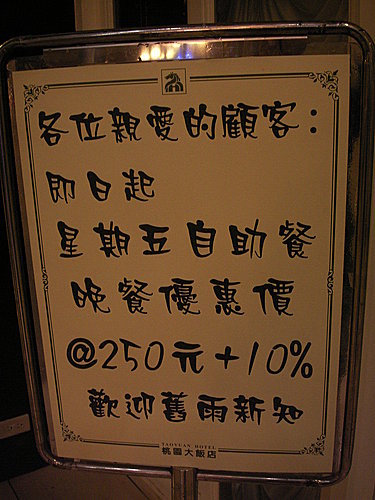 各位親愛的顧客：
即日起
星期五自助餐
晚餐優惠價
@250元+10%
歡迎舊雨新知
TAOYUAN HOTEL
桃園大飯店